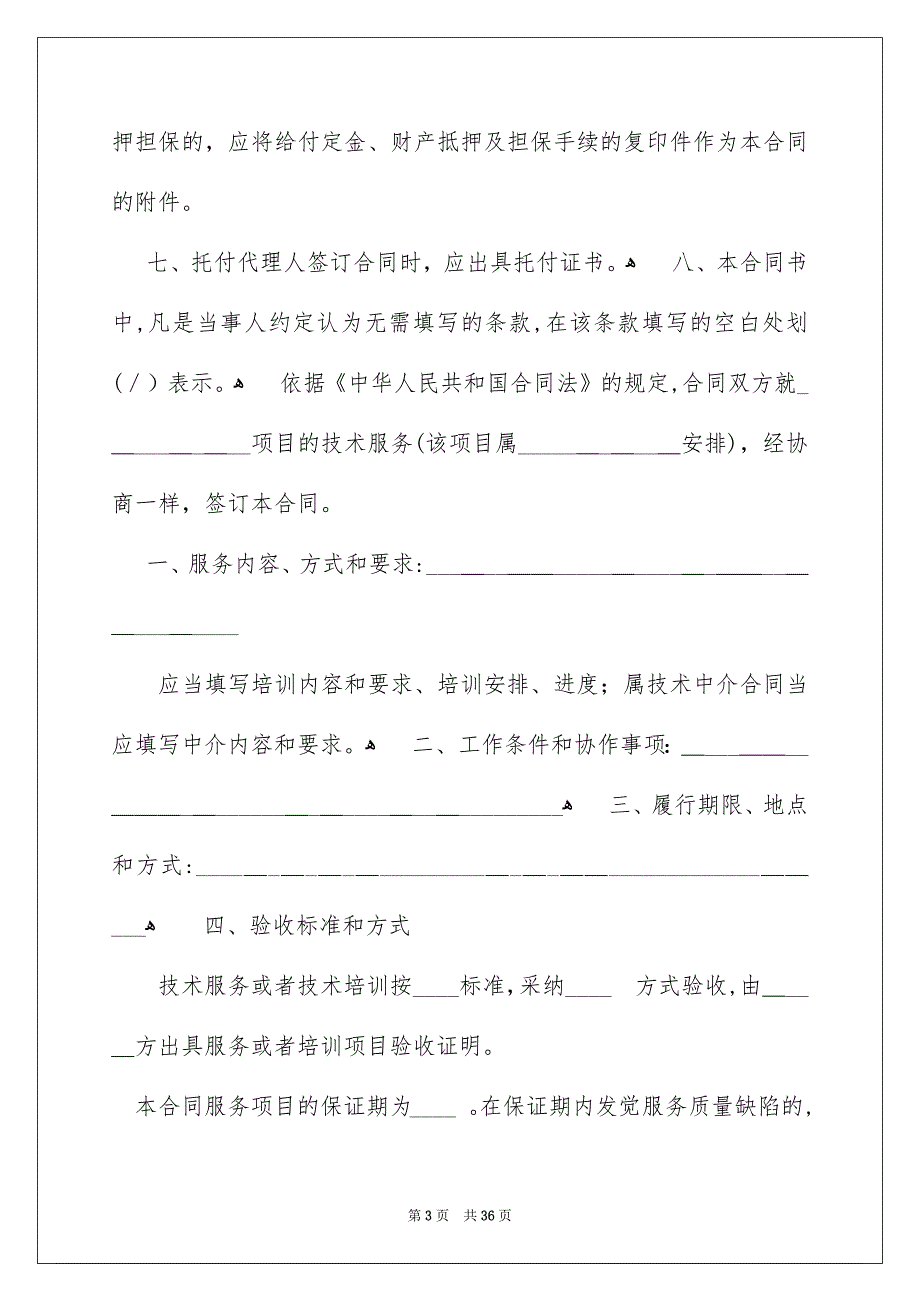 押担保的，应将给付定金、财产抵押及担保手续的复印件作为本合同
的附件。
七、托付代理人签订合同时，应出具托付证书。ﻫ 八、本合同书
中,凡是当事人约定认为无需填写的条款,在该条款填写的空白处划
(/）表示。ﻫ 依据《中华人民共和国合同法》的规定,合同双方就_
____________项目的技术服务(该项目属______________安排)，经协
商一样，签订本合同。
一、服务内容、方式和要求:_________________________________
___________
应当填写培训内容和要求、培训安排、进度；属技术中介合同当
应填写中介内容和要求。ﻫ 二、工作条件和协作事项：___________
_______________________________________ﻫ 三、履行期限、地点
和方式:_____________________________________________________
___ﻫ 四、验收标准和方式
技术服务或者技术培训按____标准,采纳____ 方式验收,由____
__方出具服务或者培训项目验收证明。
本合同服务项目的保证期为____ 。在保证期内发觉服务质量缺陷的,
第 3 页 共 36 页